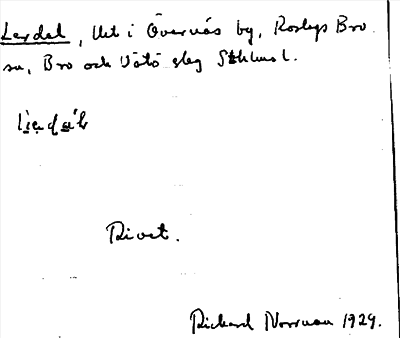 Lerdal, Uti Övernäs by, Roslags Bro
sn, Bro och Vätö slg Sthlms l.
Rivet.
Richard Norrman 1929.